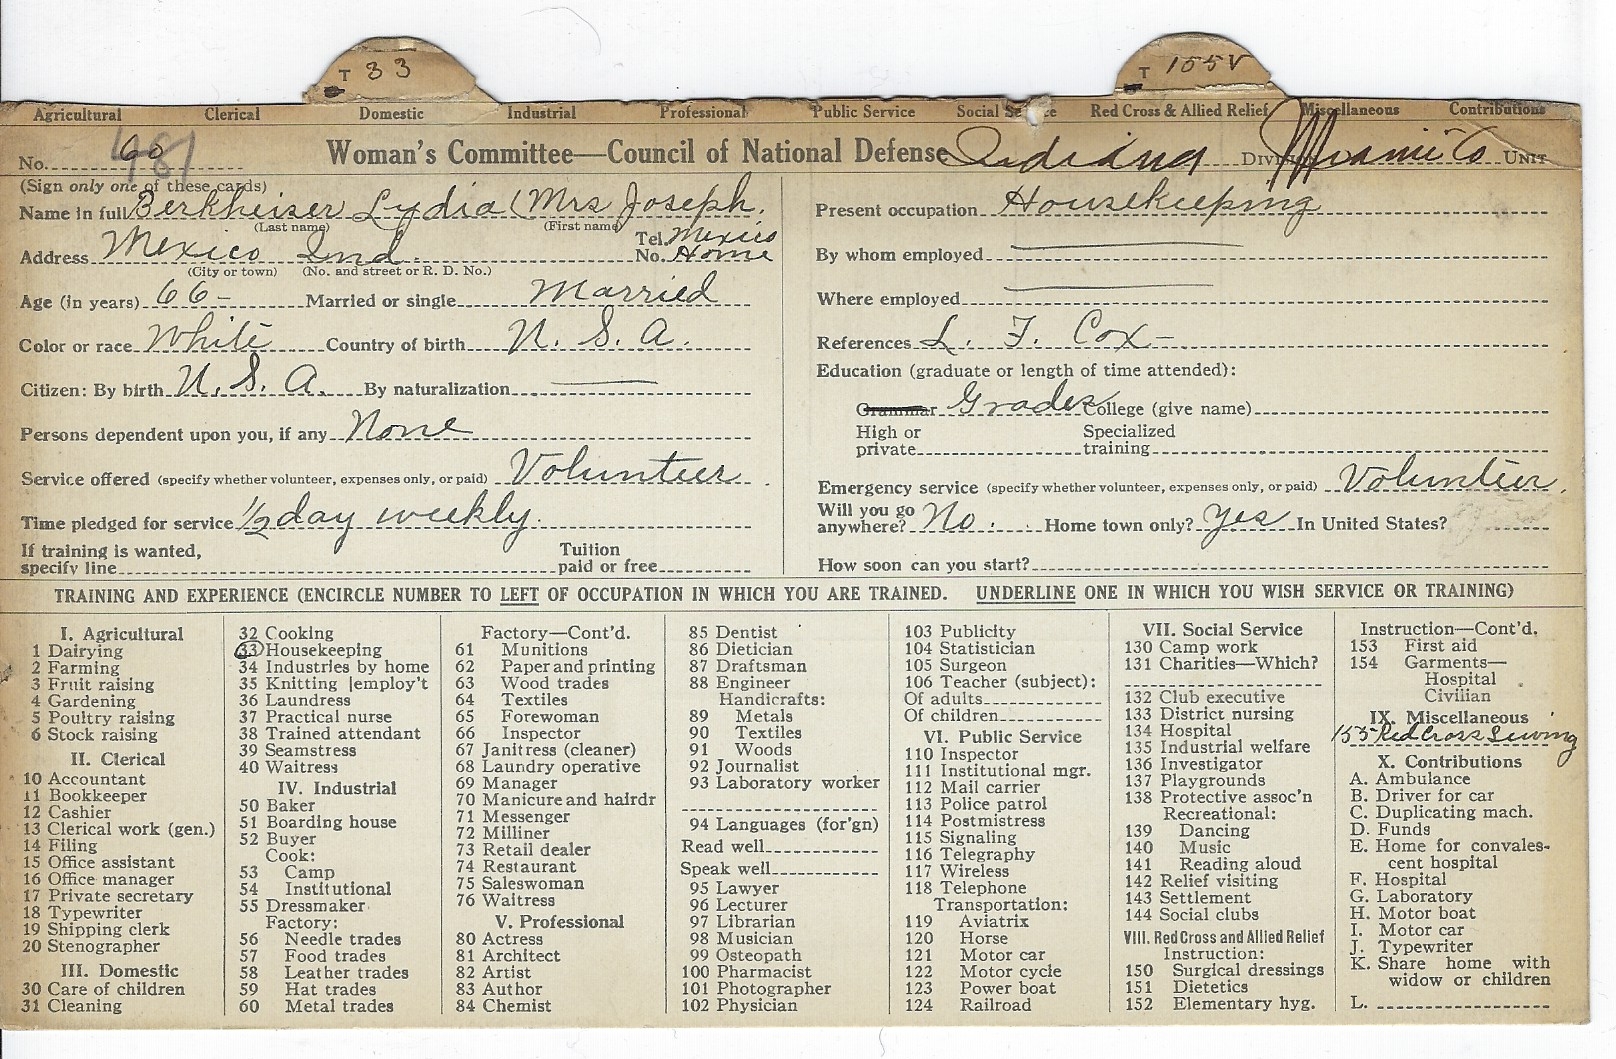 T 33
T 155V
Agricultural Clerical Domestic Industrial Professional Public Service Social Service Red Cross & Allied Relief Miscellaneous Contributions
No. 60 481
Woman's Committee—Council of National Defense Indiana DIVISION Miami Co UNIT
(Sign only one of these cards)
Name in full Berkheiser Lydia (Mrs Joseph.
(Last name) (First name)
Address Mexico Ind. Tel. No. Mexico Home
(City or town) (No. and street or R. D. No.)
Age (in years) 66- Married or single Married
Color or race White Country of birth U. S. A.
Citizen: By birth U. S. A. By naturalization
Persons dependent upon you, if any None
Service offered (specify whether volunteer, expenses only, or paid) Volunteer.
Time pledged for service 1/2 day weekly.
If training is wanted, specify line Tuition paid or free
Present occupation Housekeeping
By whom employed
Where employed
References L. F. Cox-
Education (graduate or length of time attended):
Grammar Grades College (give name)
High or private Specialized training
Emergency service (specify whether volunteer, expenses only, or paid) Volunteer.
Will you go anywhere? No. Home town only? Yes In United States?
How soon can you start?
TRAINING AND EXPERIENCE (ENCIRCLE NUMBER TO LEFT OF OCCUPATION IN WHICH YOU ARE TRAINED. UNDERLINE ONE IN WHICH YOU WISH SERVICE OR TRAINING)
I. Agricultural
1 Dairying
2 Farming
3 Fruit raising
4 Gardening
5 Poultry raising
6 Stock raising
II. Clerical
10 Accountant
11 Bookkeeper
12 Cashier
13 Clerical work (gen.)
14 Filing
15 Office assistant
16 Office manager
17 Private secretary
18 Typewriter
19 Shipping clerk
20 Stenographer
III. Domestic
30 Care of children
31 Cleaning
32 Cooking
33 Housekeeping
34 Industries by home
35 Knitting |employ't
36 Laundress
37 Practical nurse
38 Trained attendant
39 Seamstress
40 Waitress
IV. Industrial
50 Baker
51 Boarding house
52 Buyer
Cook:
53 Camp
54 Institutional
55 Dressmaker
Factory:
56 Needle trades
57 Food trades
58 Leather trades
59 Hat trades
60 Metal trades
Factory—Cont'd.
61 Munitions
62 Paper and printing
63 Wood trades
64 Textiles
65 Forewoman
66 Inspector
67 Janitress (cleaner)
68 Laundry operative
69 Manager
70 Manicure and hairdr
71 Messenger
72 Milliner
73 Retail dealer
74 Restaurant
75 Saleswoman
76 Waitress
V. Professional
80 Actress
81 Architect
82 Artist
83 Author
84 Chemist
85 Dentist
86 Dietician
87 Draftsman
88 Engineer
Handicrafts:
89 Metals
90 Textiles
91 Woods
92 Journalist
93 Laboratory worker
94 Languages (for'gn)
Read well
Speak well
95 Lawyer
96 Lecturer
97 Librarian
98 Musician
99 Osteopath
100 Pharmacist
101 Photographer
102 Physician
103 Publicity
104 Statistician
105 Surgeon
106 Teacher (subject):
Of adults
Of children
VI. Public Service
110 Inspector
111 Institutional mgr.
112 Mail carrier
113 Police patrol
114 Postmistress
115 Signaling
116 Telegraphy
117 Wireless
118 Telephone
Transportation:
119 Aviatrix
120 Horse
121 Motor car
122 Motor cycle
123 Power boat
124 Railroad
VII. Social Service
130 Camp work
131 Charities—Which?
132 Club executive
133 District nursing
134 Hospital
135 Industrial welfare
136 Investigator
137 Playgrounds
138 Protective assoc'n
Recreational:
139 Dancing
140 Music
141 Reading aloud
142 Relief visiting
143 Settlement
144 Social clubs
VIII. Red Cross and Allied Relief
Instruction:
150 Surgical dressings
151 Dietetics
152 Elementary hyg.
Instruction—Cont'd.
153 First aid
154 Garments—
Hospital
Civilian
IX. Miscellaneous
155 Red Cross Sewing
X. Contributions
A. Ambulance
B. Driver for car
C. Duplicating mach.
D. Funds
E. Home for convales-
cent hospital
F. Hospital
G. Laboratory
H. Motor boat
I. Motor car
J. Typewriter
K. Share home with
widow or children
L.